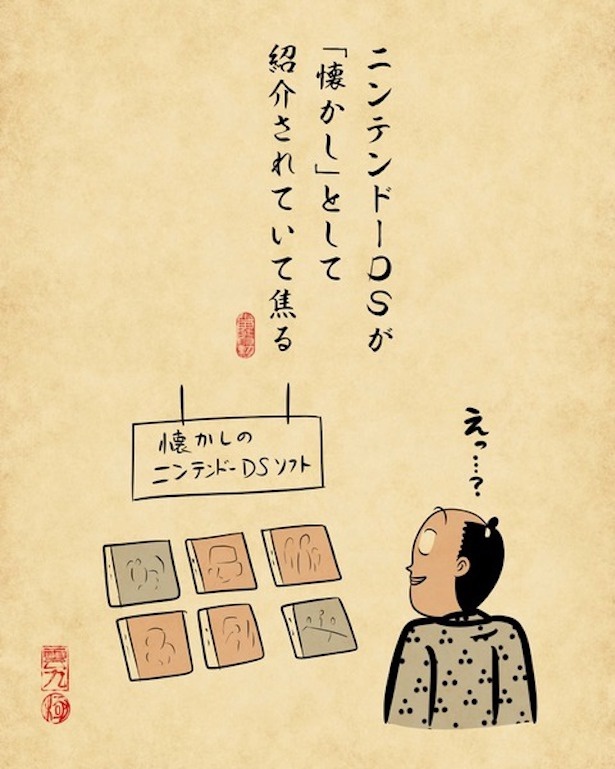 ニンテンドーDSが
「懐かし」として
紹介されていて焦る
懐かしの
ニンテンドーDSソフト
えっ…?